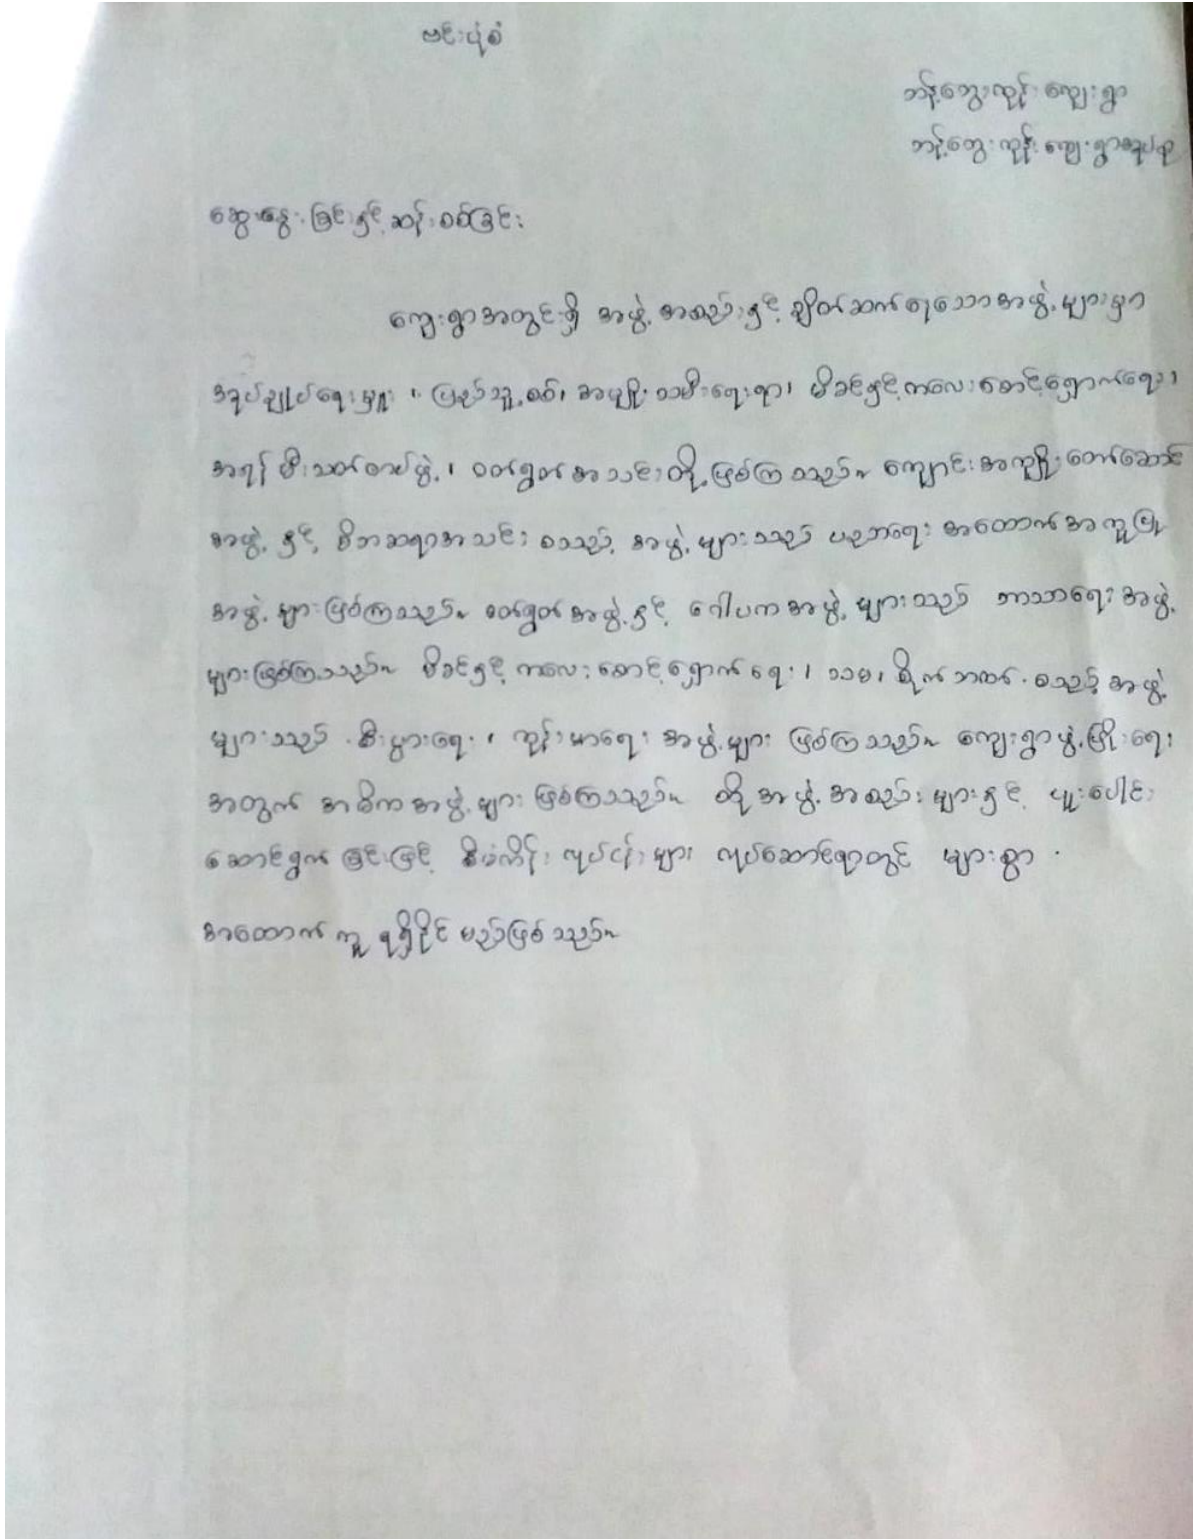 ဗင်းပုံစံ
ဘန့်ဘွေးကုန်း ကျေးရွာ
ဘန့်ဘွေးကုန်း ကျေးရွာအုပ်စု
ဆွေးနွေးခြင်းနှင့် ဆန်းစစ်ခြင်း
ကျေးရွာအတွင်းရှိ အဖွဲ့အစည်းနှင့် ချိတ်ဆက်ရသောအဖွဲ့များမှာ
အုပ်ချုပ်ရေးမှူး၊ ပြည်သူ့စစ်၊ အမျိုးသမီးရေးရာ၊ မိခင်နှင့်ကလေးစောင့်ရှောက်ရေး၊
အရန်မီးသတ်တပ်ဖွဲ့၊ ဝတ်ရွတ်အသင်းတို့ဖြစ်ကြသည်။ ကျောင်းအကျိုးတော်ဆောင်
အဖွဲ့နှင့် မိဘဆရာအသင်း စသည့် အဖွဲ့များသည် ပညာရေး အထောက်အကူပြု
အဖွဲ့များဖြစ်ကြသည်။ ဝတ်ရွတ်အဖွဲ့နှင့် ဂေါပကအဖွဲ့များသည် ဘာသာရေးအဖွဲ့
များဖြစ်ကြသည်။ မိခင်နှင့် ကလေးစောင့်ရှောက်ရေး၊ သမ၊ စိုက်ဘဏ် စသည့်အဖွဲ့
များသည် စီးပွားရေး၊ ကျန်းမာရေး အဖွဲ့များ ဖြစ်ကြသည်။ ကျေးရွာဖွံ့ဖြိုးရေး
အတွက် အဓိကအဖွဲ့များ ဖြစ်ကြသည်။ ထိုအဖွဲ့အစည်းများနှင့် ပူးပေါင်း
ဆောင်ရွက်ခြင်းဖြင့် စီမံကိန်းလုပ်ငန်းများ လုပ်ဆောင်ရာတွင် များစွာ
အထောက်ကူ ရရှိနိုင်မည်ဖြစ်သည်။